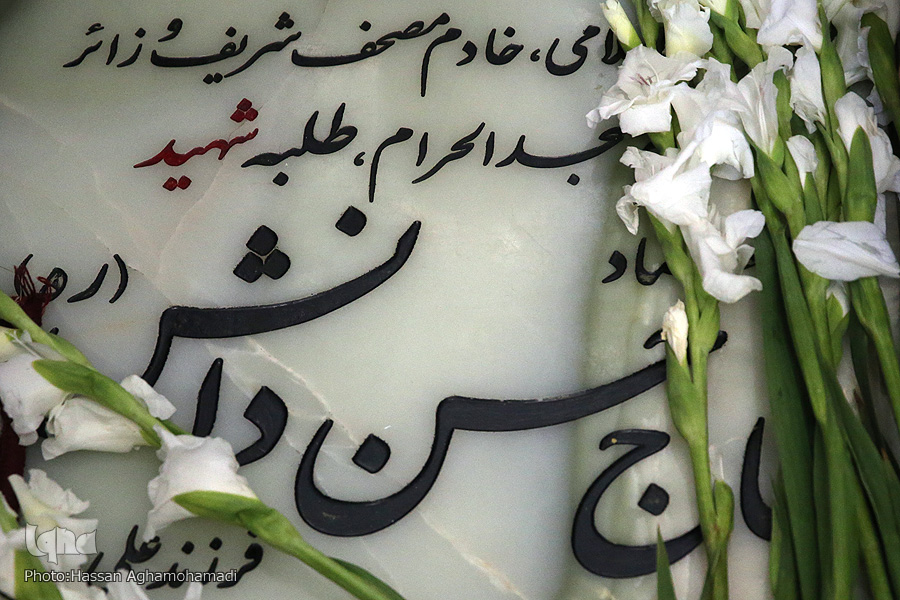 خادم مصحف شریف و زائر
الحرام، طلبه شهید
حاج حسن دانش
فرزند علی
iqna
Photo:Hassan Aghamohamadi